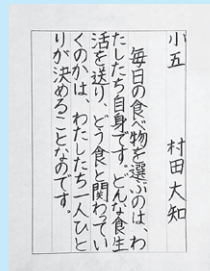 小五　村田大知
毎日の食べ物を選ぶのは、わ
たしたち自身です。どんな食生
活を送り、どう食と関わってい
くのかは、わたしたち一人ひと
りが決めることなのです。